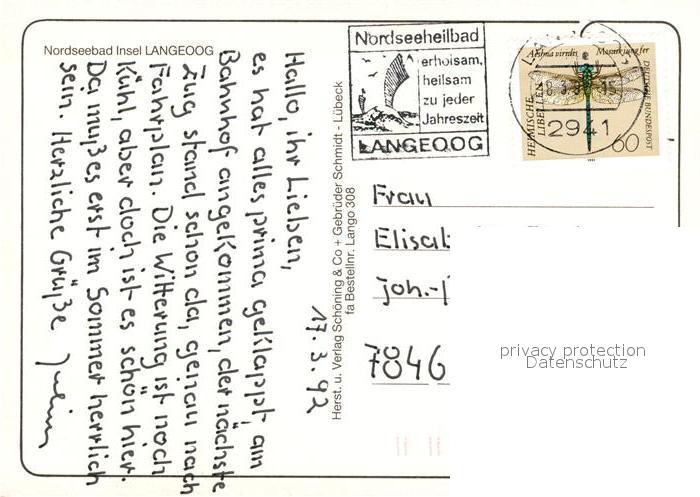 Nordseebad Insel LANGEOOG
Hallo, ihr Lieben,
es hat alles prima geklappt, am
Bahnhof angekommen, der nächste
Zug stand schon da, genau nach
Fahrplan. Die Witterung ist noch
Kühl, aber doch ist es schön hier.
Da muß es erst im Sommer herrlich
sein. Herzliche Grüße
17.3.92
Herst. u. Verlag Schöning & Co + Gebrüder Schmidt - Lübeck
fa Bestellnr. Lango 308
Nordseeheilbad
erholsam,
heilsam
zu jeder
Jahreszeit
LANGEOOG
Aeshna viridis Mosaikjungfer
HEIMISCHE
LIBELLEN
DEUTSCHE BUNDESPOST
60
2941
Frau
Elisab
Joh.-
7046
privacy protection
Datenschutz